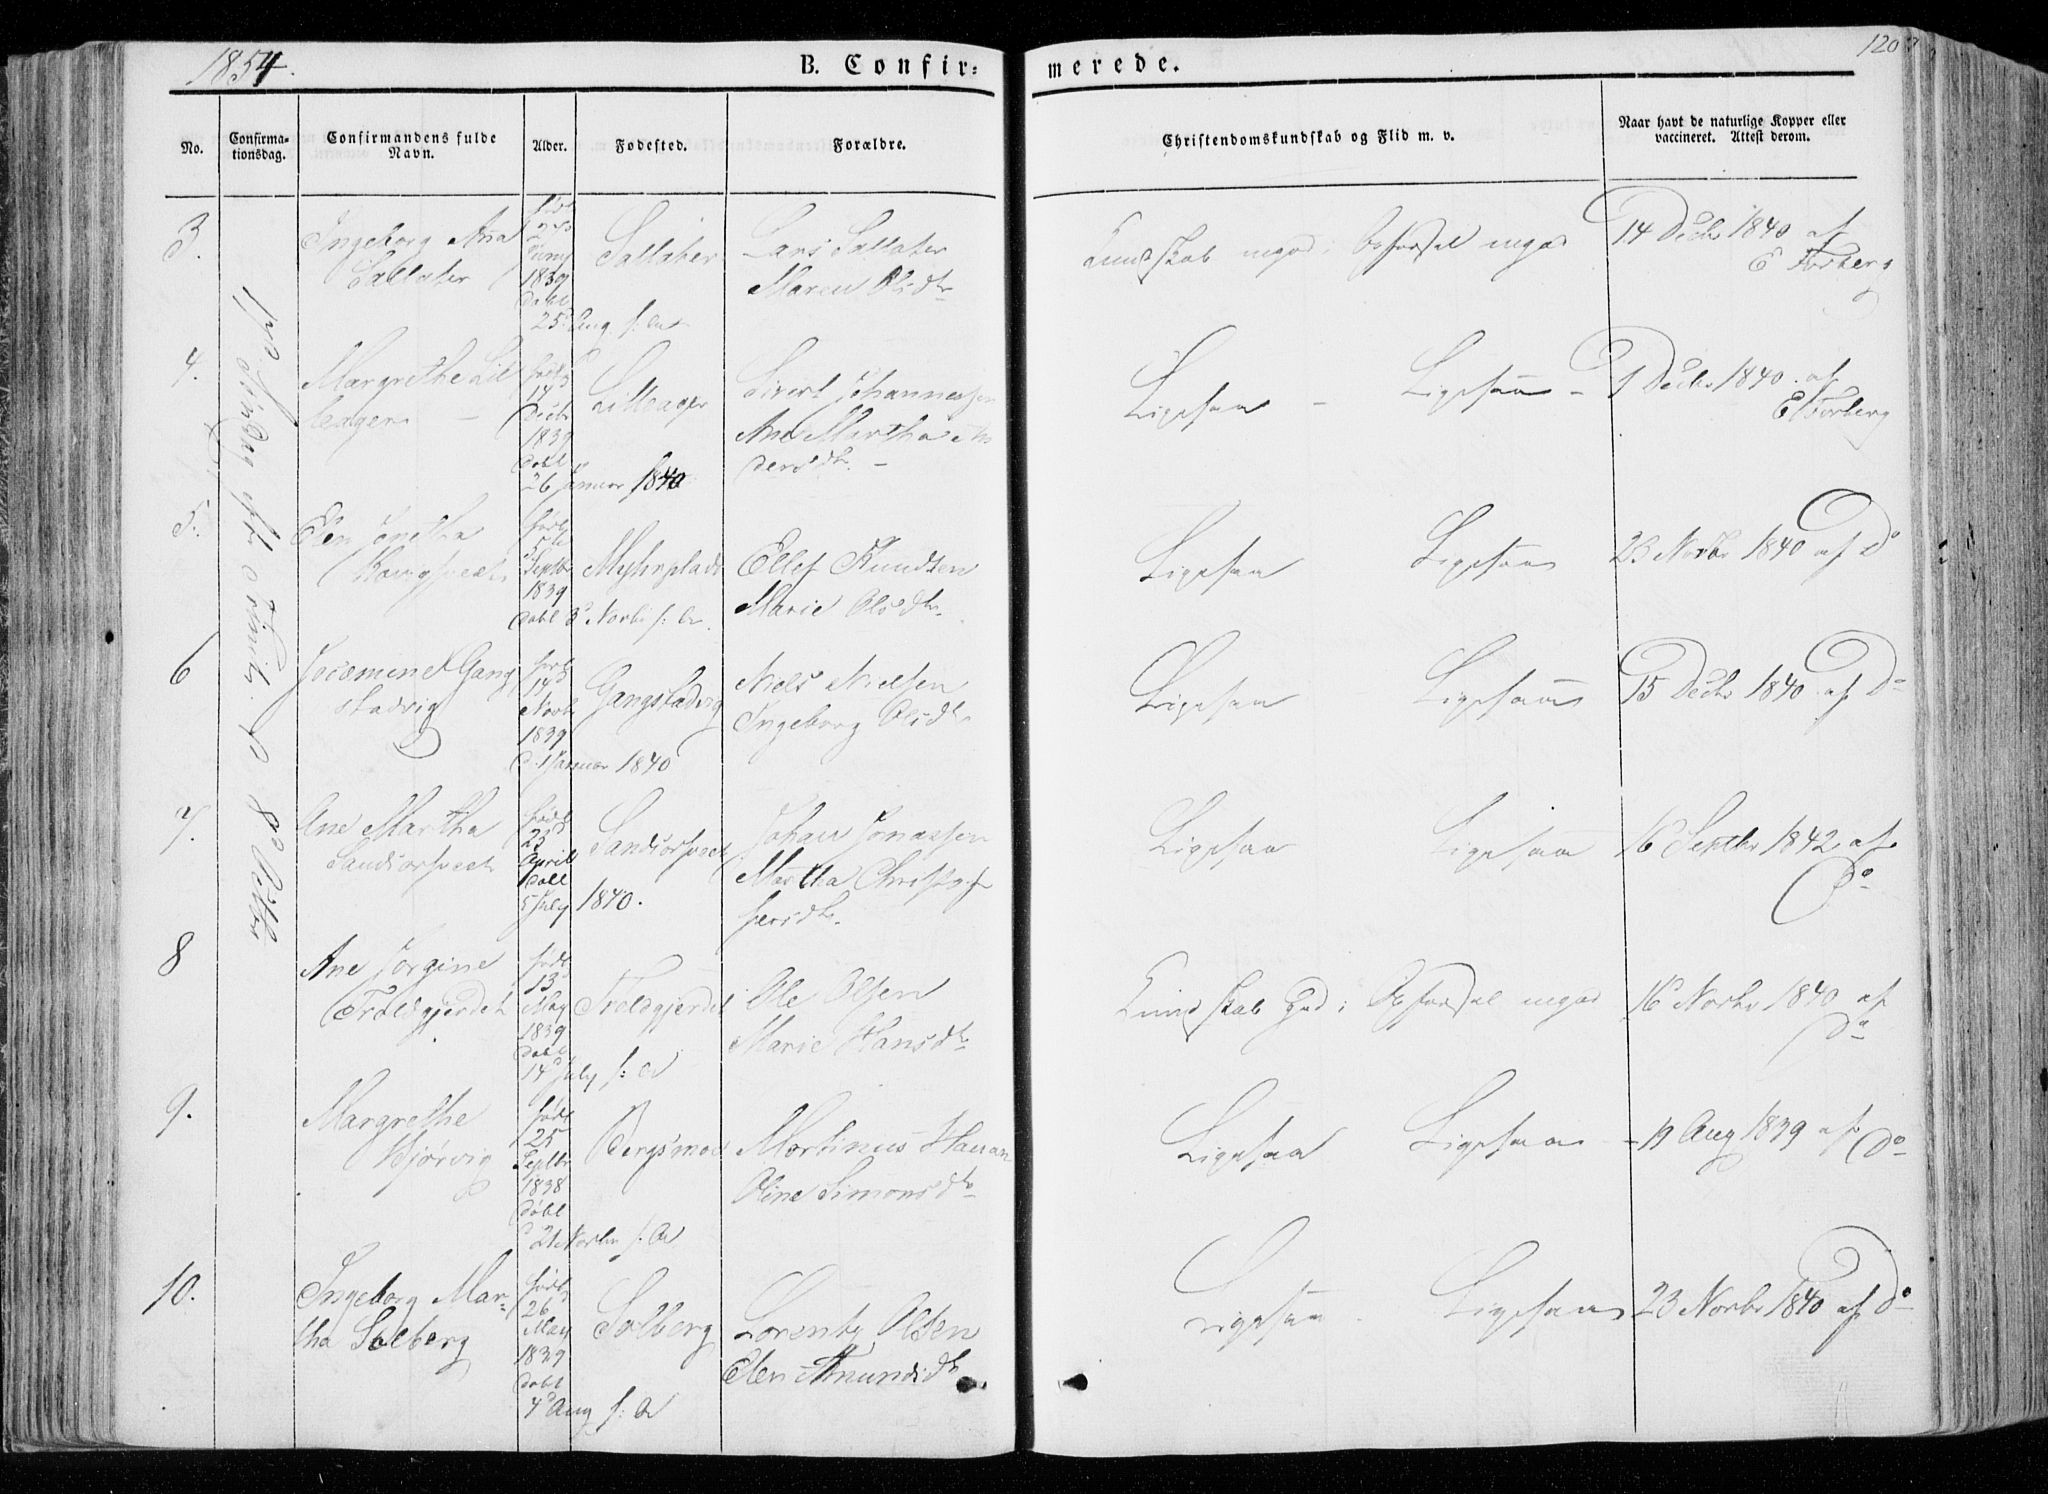 1854.
B. Confir-
merede.
120
No.
Confirma-
tionsdag.
Confirmandens fulde
Navn.
Alder.
Fødested.
Forældre.
Christendomskundskab og Flid m. v.
Naar havt de naturlige Kopper eller
vaccineret. Attest derom.
3.
Ingeborg Ana
Saltater
født
Juny
1839
døbt
25 Aug. s: A
Saltater
Lars Saltater
Maren Olsdtr
Kundskab mgod, Opførsel mgod
14 Decbr 1840 af
E Forberg
4.
Margrethe Lil
leager
født
14
Decbr
1839
døbt
26 Januar 1840
Lilleager
Sivert Johannessen
Ane Martha An
dersdtr.
Ligesaa - Ligesaa -
9 Decbr 1840. af
E Forberg
5.
Elen
født
5te
Septbr
1839
døbt 3 Novbr s: A.
Myhrplads
Ellef Knudsen
Marie Olsdtr.
Ligesaa Ligesaa
23 Novbr 1840 af Do
6
Jocomine Gang
stadvig
født
14
Novbr
1839
d. 1 Januar 1840
Gangstadvig
Niels Nielsen
Ingeborg Olsdtr
Ligesaa Ligesaa
15 Decbr 1840. af Do
7.
Ane Martha
født
23
April
døbt
5 July 1840.
Johan Jonassen
Martha Christof
fersdtr.
Ligesaa Ligesaa
16 Septbr 1842 af
Do
8
Ane Jorgine
Troldgjerdet
født
13
May
1839
døbt
14 July s: A
Troldgjerdet
Ole Olsen
Marie Hansdtr
Kundskab god, Opførsel mgod
16 Novbr 1840 af
Do
9.
Margrethe
Hjørvig
født
25
Septbr
1838
døbt
21 Novbr s: A
Bergsmoe
Martinus Hauan
Oline Simonsdtr
Ligesaa Ligesaa
19 Aug 1839 af Do
10.
Ingeborg Mar-
tha Solberg
født
26
May
1839
døbt
4 Aug s: A
Solberg
Lorents Olsen
Elen Amundsdtr
Ligesaa. Ligesaa
23 Novbr 1840 af Do